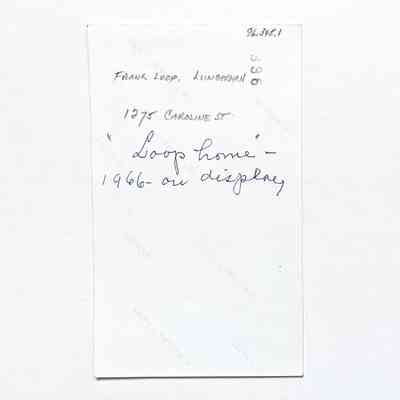 96.345.1
FRANK LOOP, LUMBERMAN
1275 CAROLINE ST
"Loop home" -
1966 - on display